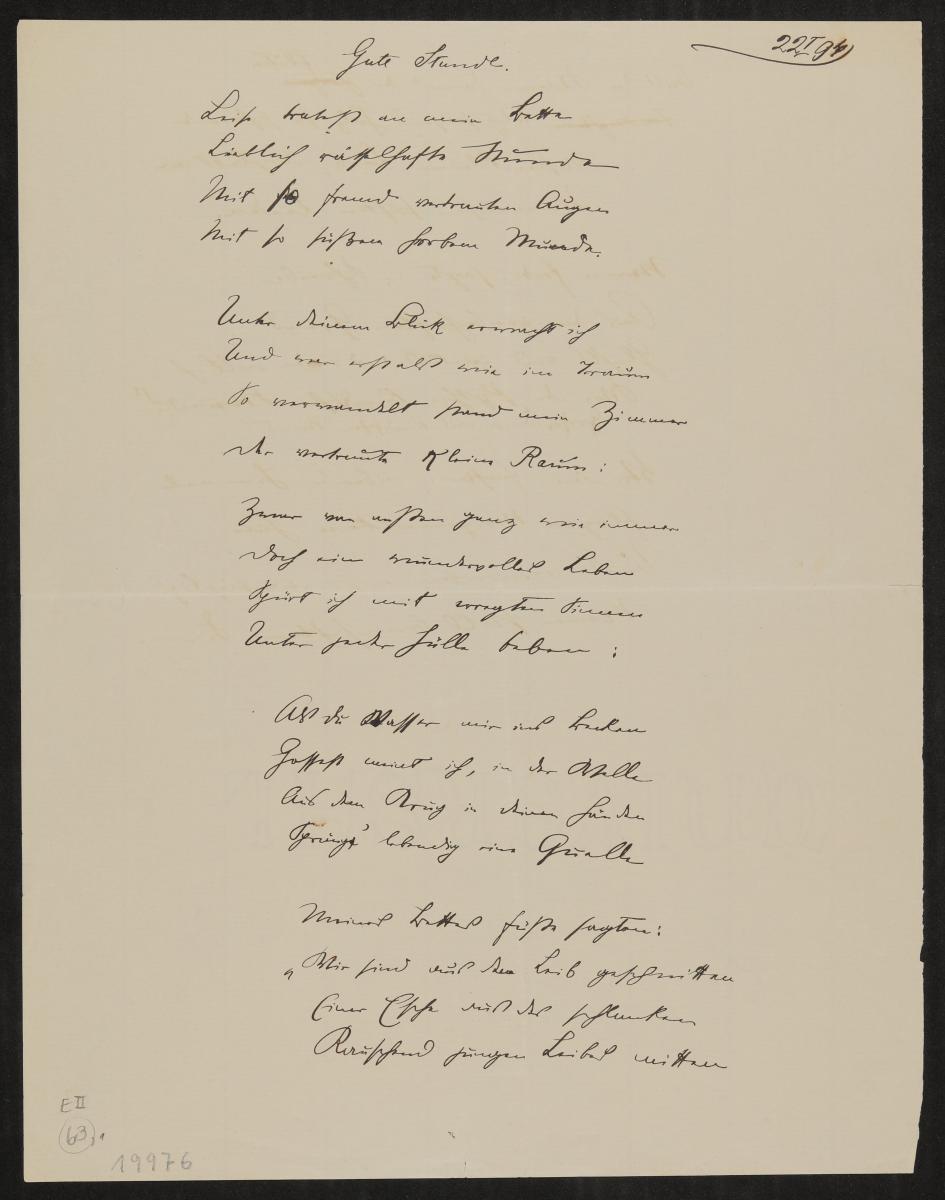 22 I 94
Gute Stunde.
Leise tratest an mein Bette
Lieblich räthselhafte Stunde
Mit so fremd vertrauten Augen
Mit so süßem herbem Munde.
Unter deinem Blick erwacht ich
Und war erst als wie im Traum
So verwandelt stand mein Zimmer
der vertraute kleine Raum:
Zwar von außen ganz wie immer
doch ein wundervolles Leben
Spürt ich mit erregten Sinnen
Unter jeder Hülle beben:
Als du Wasser mir ins Becken
Gossest meint ich, in der Welle
Aus dem Krug in deinen Händen
Spräng' lebendig eine Quelle
Meines Bettes Füße sagten:
„Wir sind aus dem Leib geschnitten
Einer Esche aus des schlanken
Rauschend jungen Leibes mitten
E II
63,1
19976